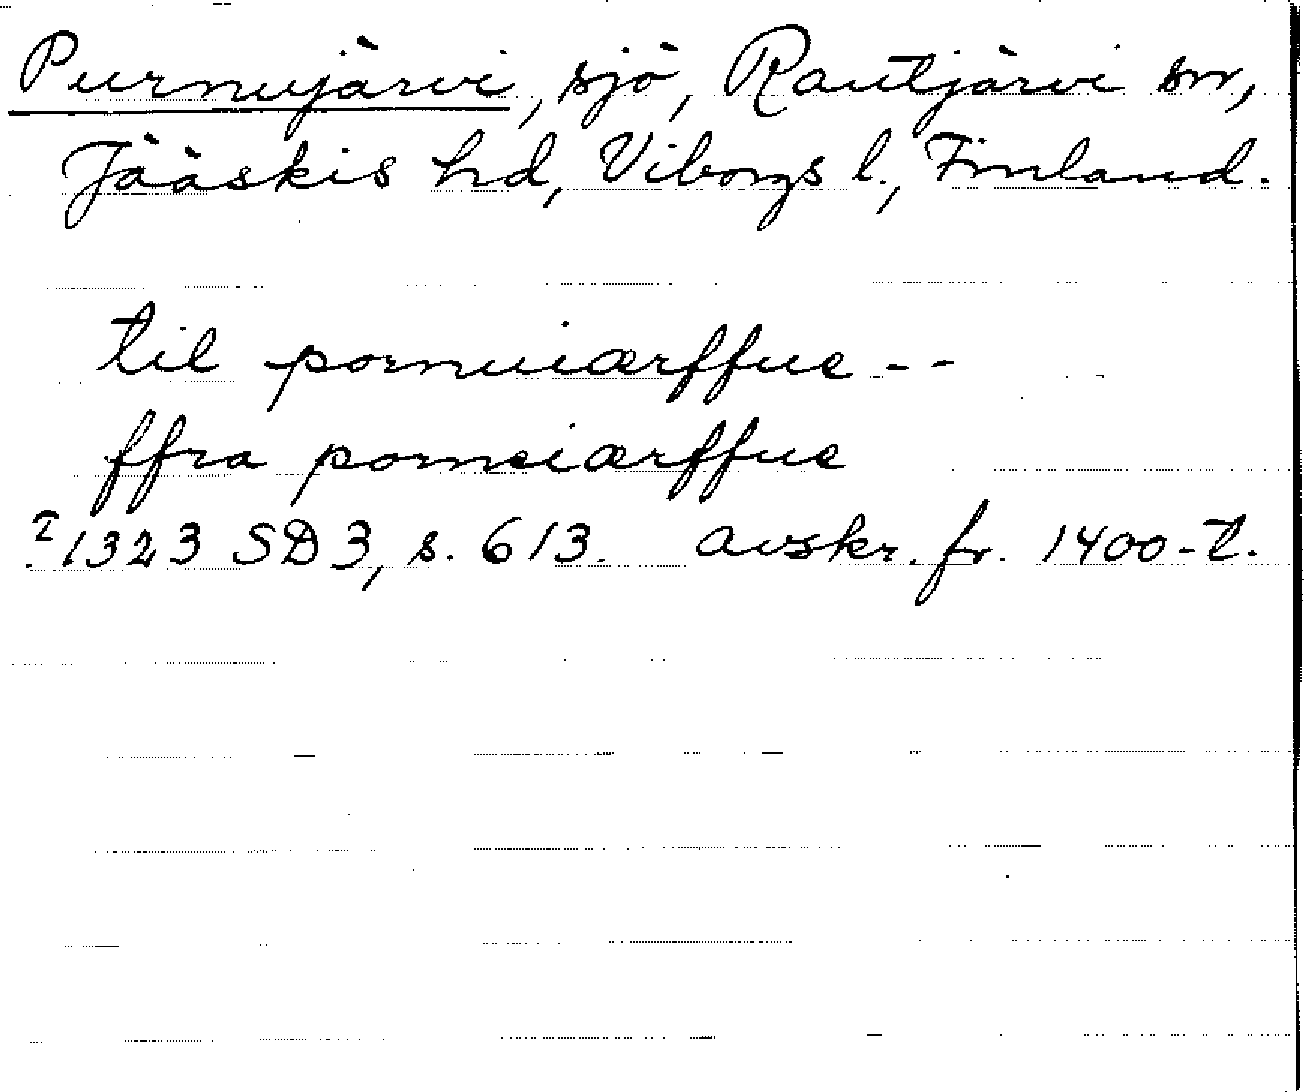 Purnujärvi, sjö, Rautjärvi sn,
Jääskis hd, Viborgs l., Finland.
til pornuiærffue --
ffra porneiærffue
?1323 SD3, s. 613. avskr. fr. 1400-t.